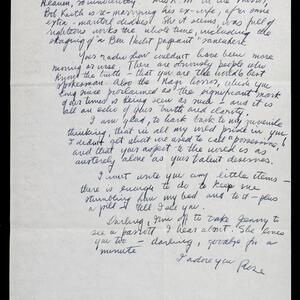 Bob Keith is re-marrying his ex-wife after some
extra-marital disclose. She it seems, was full of
righteous works the whole time, including the
staging of a Ben Hecht pageant somewhere.
Your radio show couldn't have been more
moving or wise. There are obviously people who
know the truth — that you are the world's best
spokesman.
long since proclaimed as the significant mark
of our times is being seen as such — and it is
all an echo of your worth and clarity.
I am glad, to hark back to my juvenile
thinking, that in all my wild pride in you
I didn't get what we used to call "possessive,"
and that your aspect to the world is as
austerely alone as your talent deserves.
I won't write you any little items —
there is enough to do to keep me
stumbling from my bed and to it — plus
a pill — till I see you.
Darling, I'm off to take Jenny to
see a parrott I hear about. She loves
you too — darling, goodbye for a
minute
I adore you Rose